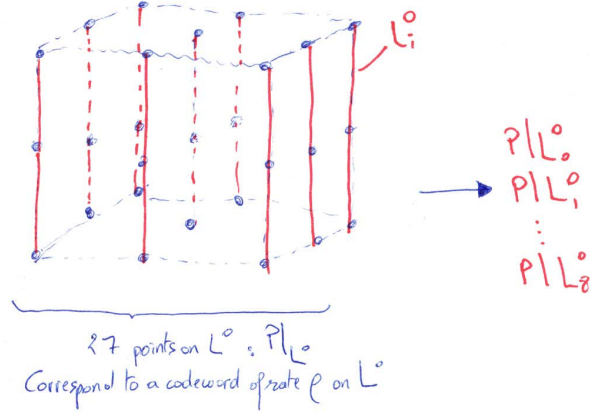 L⁰ᵢ
P|L⁰₀
P|L⁰₁
⋮
P|L⁰₈
27 points on L⁰ : P|L⁰
Correspond to a codeword of rate ρ on L⁰